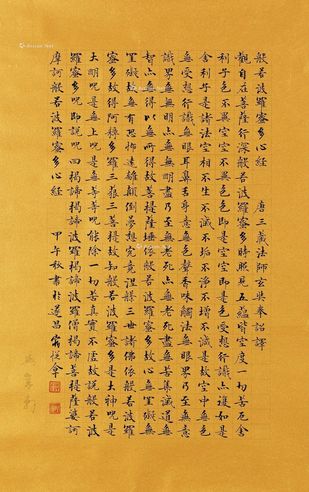 般若波羅蜜多心經 唐三藏法師玄奘奉詔譯
觀自在菩薩行深般若波羅蜜多時照見五蘊皆空度一切苦厄舍
利子色不異空空不異色色即是空空即是色受想行識亦復如是
舍利子是諸法空相不生不滅不垢不淨不增不減是故空中無色
無受想行識無眼耳鼻舌身意無色聲香味觸法無眼界乃至無意
識界無無明亦無無明盡乃至無老死亦無老死盡無苦集滅道無
智亦無得以無所得故菩提薩埵依般若波羅蜜多故心無罣礙無
罣礙故無有恐怖遠離顛倒夢想究竟涅槃三世諸佛依般若波羅
蜜多故得阿耨多羅三藐三菩提故知般若波羅蜜多是大神咒是
大明咒是無上咒是無等等咒能除一切苦真實不虛故說般若波
羅蜜多咒即說咒曰揭諦揭諦波羅揭諦波羅僧揭諦菩提薩婆訶
摩訶般若波羅蜜多心經 甲午秋書於遂昌